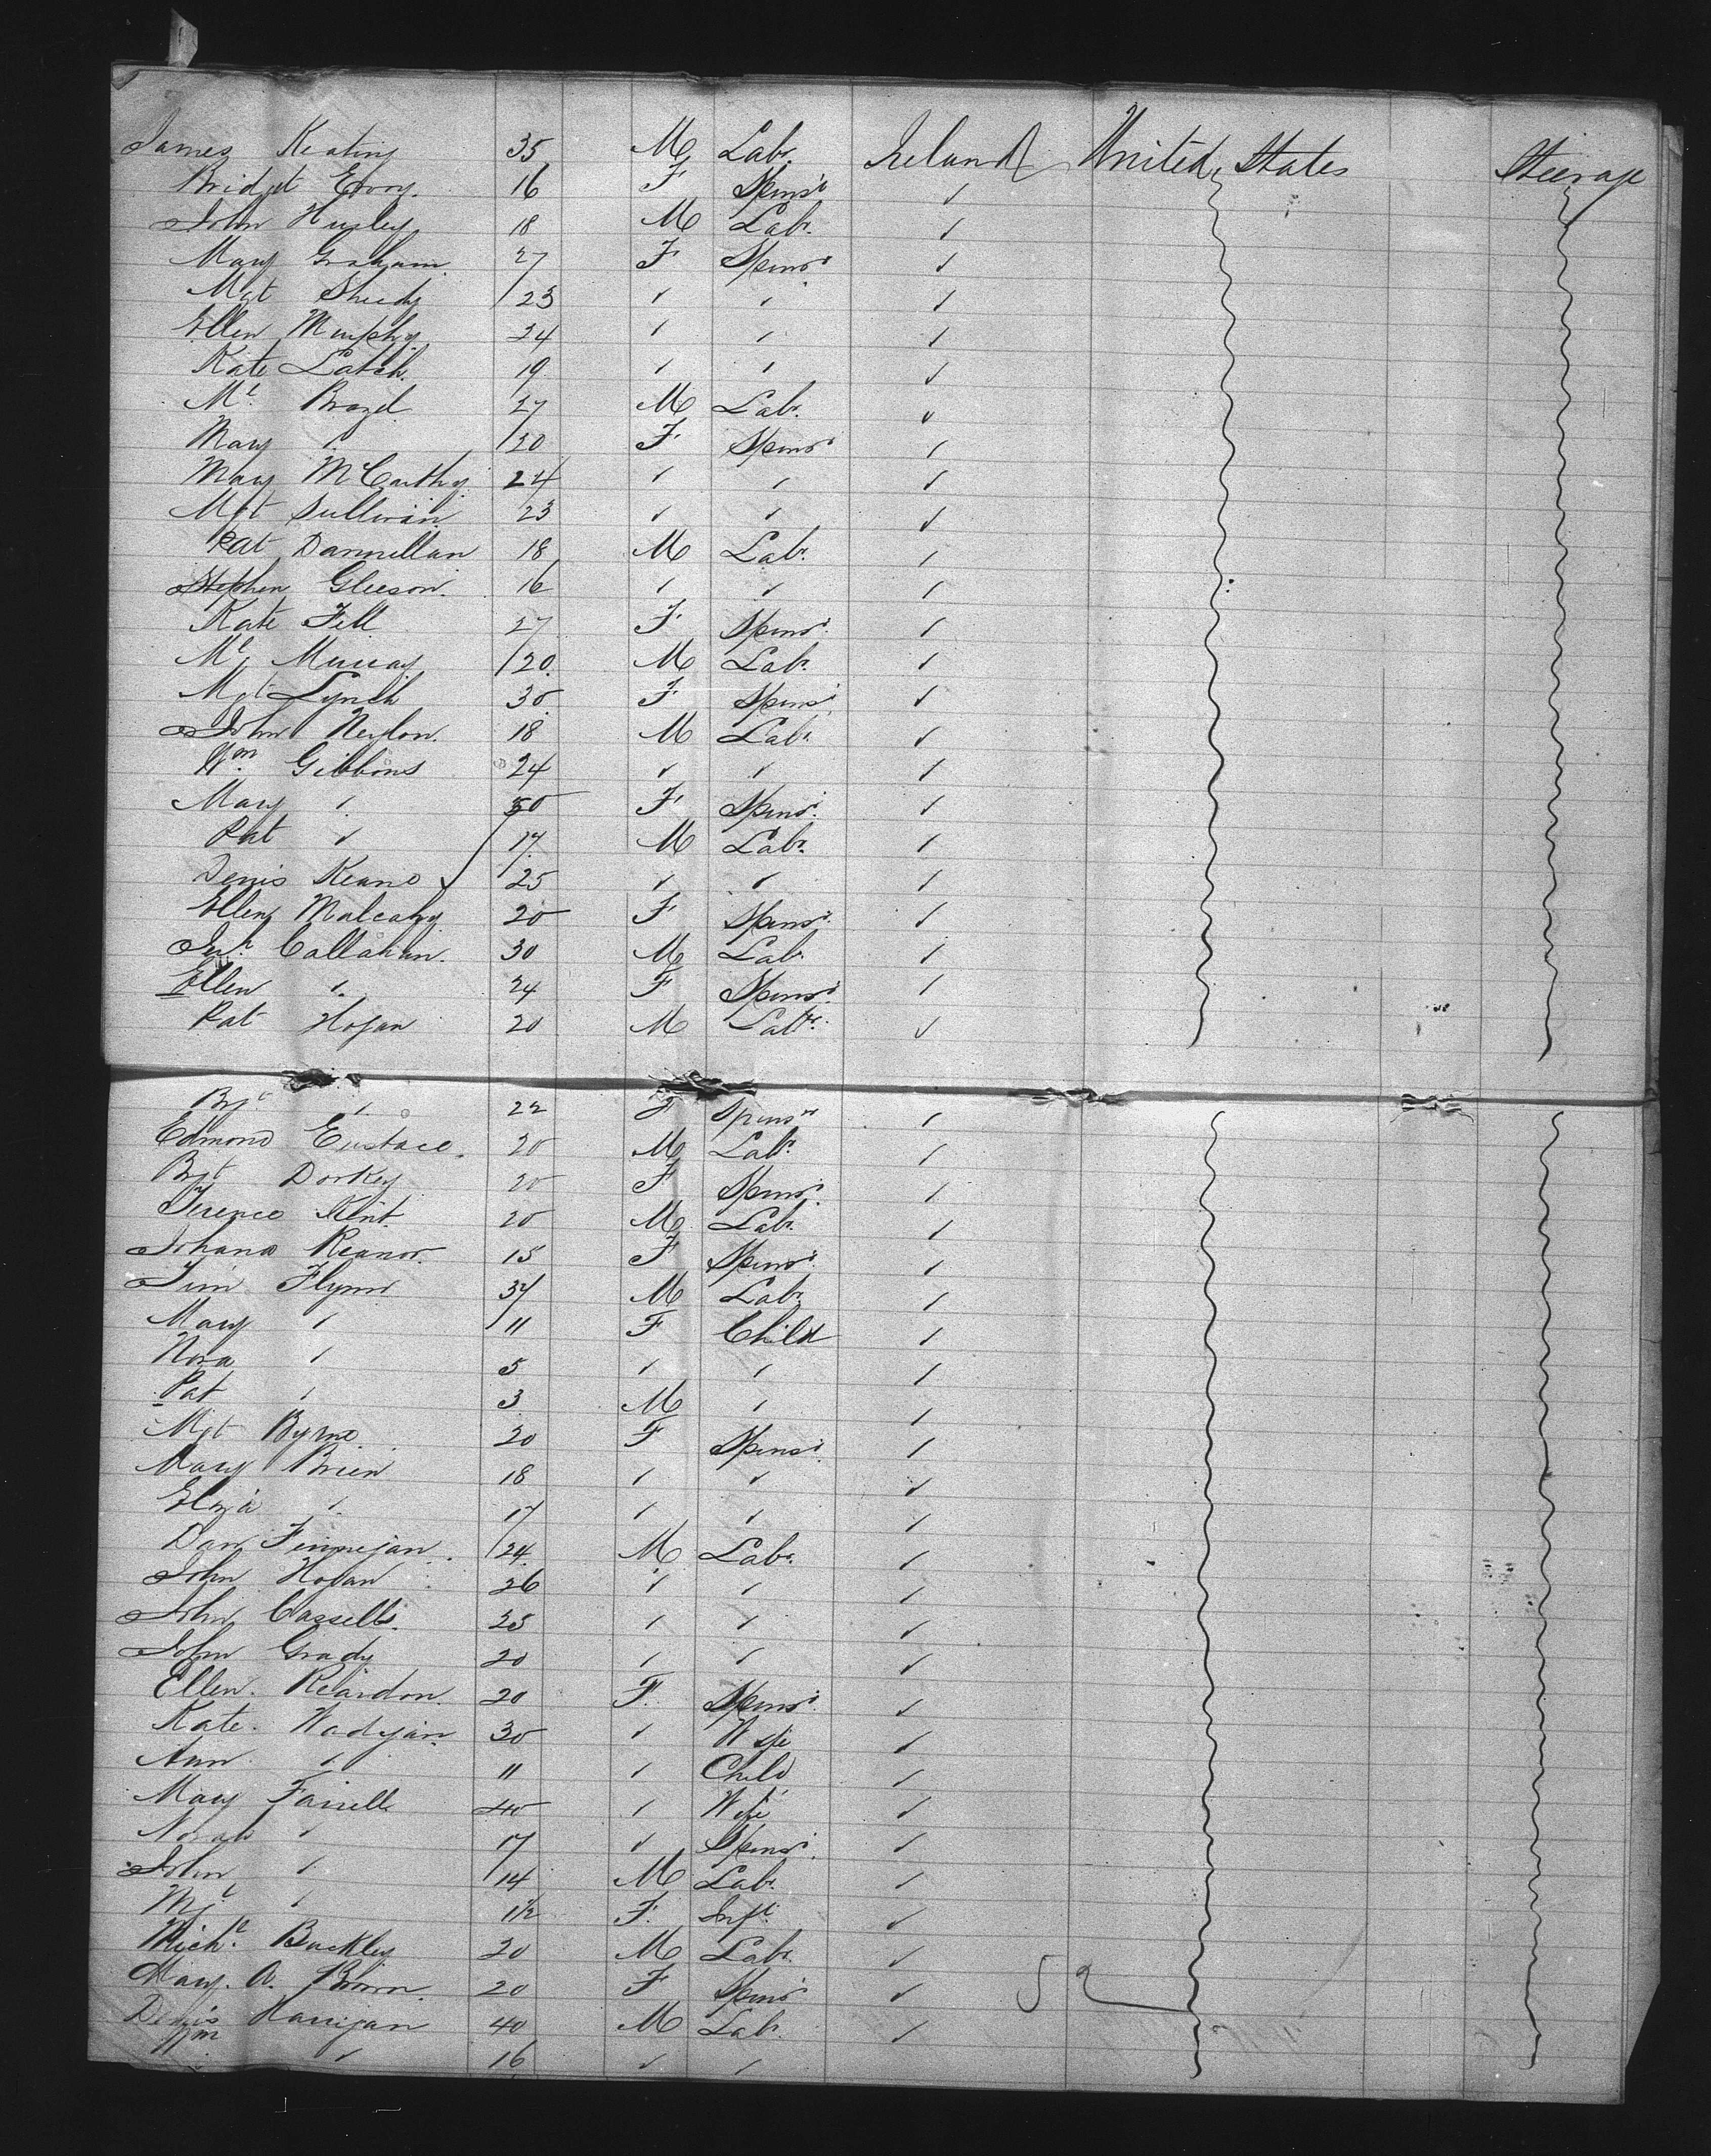 James Keating 35 M Labr. Ireland United States Steerage
Bridget 16 F Spinsr ✓
John Hurley 18 M Labr. ✓
Mary Graham 27 F Spinsr ✓
Mgt Sheedy 23 " " ✓
Ellen Murphy 24 " " "
Kate 19 " " ✓
Ml. 27 M Labr. ✓
Mary " 20 F Spinsr "
Mary McCarthy 24 " " ✓
Mgt Sullivan 23 " " ✓
Pat Dannellan 18 M Labr. "
Stephen Gleeson. 16 " " "
Kate Fell 27 F Spinsr. "
Ml Murray 20. M Labr. ✓
Mgt Lynch 30. F Spinsr ✓
John Neylon. 18 M Labr ✓
Wm. Gibbons 24 " " "
Mary " 50 F Spinsr. "
Pat " 17 M Labr. "
Denis Keane 25 " " "
Ellen Mulcahy 20 F Spinsr. ✓
Callahan. 30 M Labr "
Ellen " 24 F Spinsr. "
Pat Hogan 20 M Labr. ✓
Bgt " 22 F Spinsr "
Edmond Eustace. 20 M Labr. "
Bgt Dorkey 20 F Spinsr. "
Terence Kent. 20 M Labr. "
Johana 15 F Spinsr. "
Tim Flynn 37 M Labr. "
Mary " 11 F Child "
Nora " 5 " " "
Pat " 3 M " "
Mgt Byrne 20 F Spinsr. "
Mary Brien 18 " " ✓
Eliza " 17 " " "
Dan Finnegan. 24. M Labr. "
John Hogan 26 " " "
John Cassells. 25 " " ✓
John Grady 20 " " ✓
Ellen. Reardon. 20 F. Spinsr ✓
Kate. 30 " Wife ✓
Ann " 11 " Child ✓
Mary Farrell 40 " Wife ✓
Norah " 17 " Spinsr. ✓
John " 14 M Labr. ✓
Mgt " 1½ F. Inft. ✓
Michl. Buckley 20 M Labr. ✓
Mary. A. 20 F Spinsr ✓ 52
Denis Hanigan 40 M Labr. ✓
Wm. " 16 " "